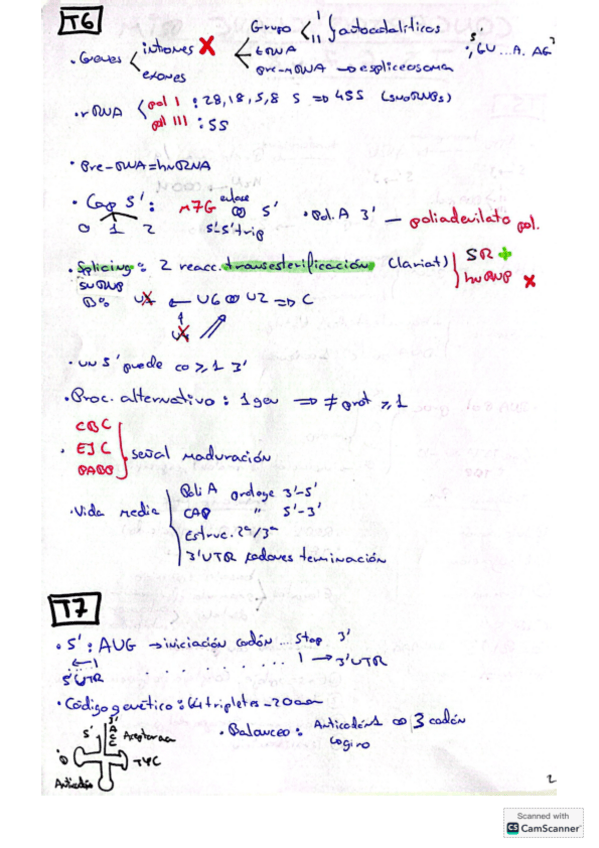 T6
Grupo < I II } autocatalíticos
· Genes < intrones X < tRNA 5' GU...A. AG 3'
exones pre-mRNA → espliceosoma
· rRNA < pol I : 28, 18, 5,8 S => 45S (snoRNPs)
pol III : 5S
· Pre-mRNA = hnRNA
· Cap 5': m7G 5' · Pol. A 3' — poliadenilato pol.
0 1 2 5'-5' trip
· Splicing: 2 reacc. transesterificación (lariat) } SR +
snRNP hnRNP X
U1 ← U6 ∞ U2 => C
U4
· un 5' puede co ≥ 1 3'
· Proc. alternativo : 1 gen => ≠ prot ≥ 1
CBC
· EJC } señal maduración
PABP
Poli A 3'-5'
· Vida media CAP " 5'-3'
Estruc. 2ª/3ª
3'UTR terminación
T7
· 5': AUG → iniciación codón ... Stop 3'
← 1 . . . . . . . . 1 → 3'UTR
5'UTR
· Código genético : 64 tripletes - 20aa
· Balanceo : Anticodón 1 ∞ 3 codón
3' A C C Aceptor aa
5'
D TΨC
Anticodón
2
Scanned with
CS CamScanner